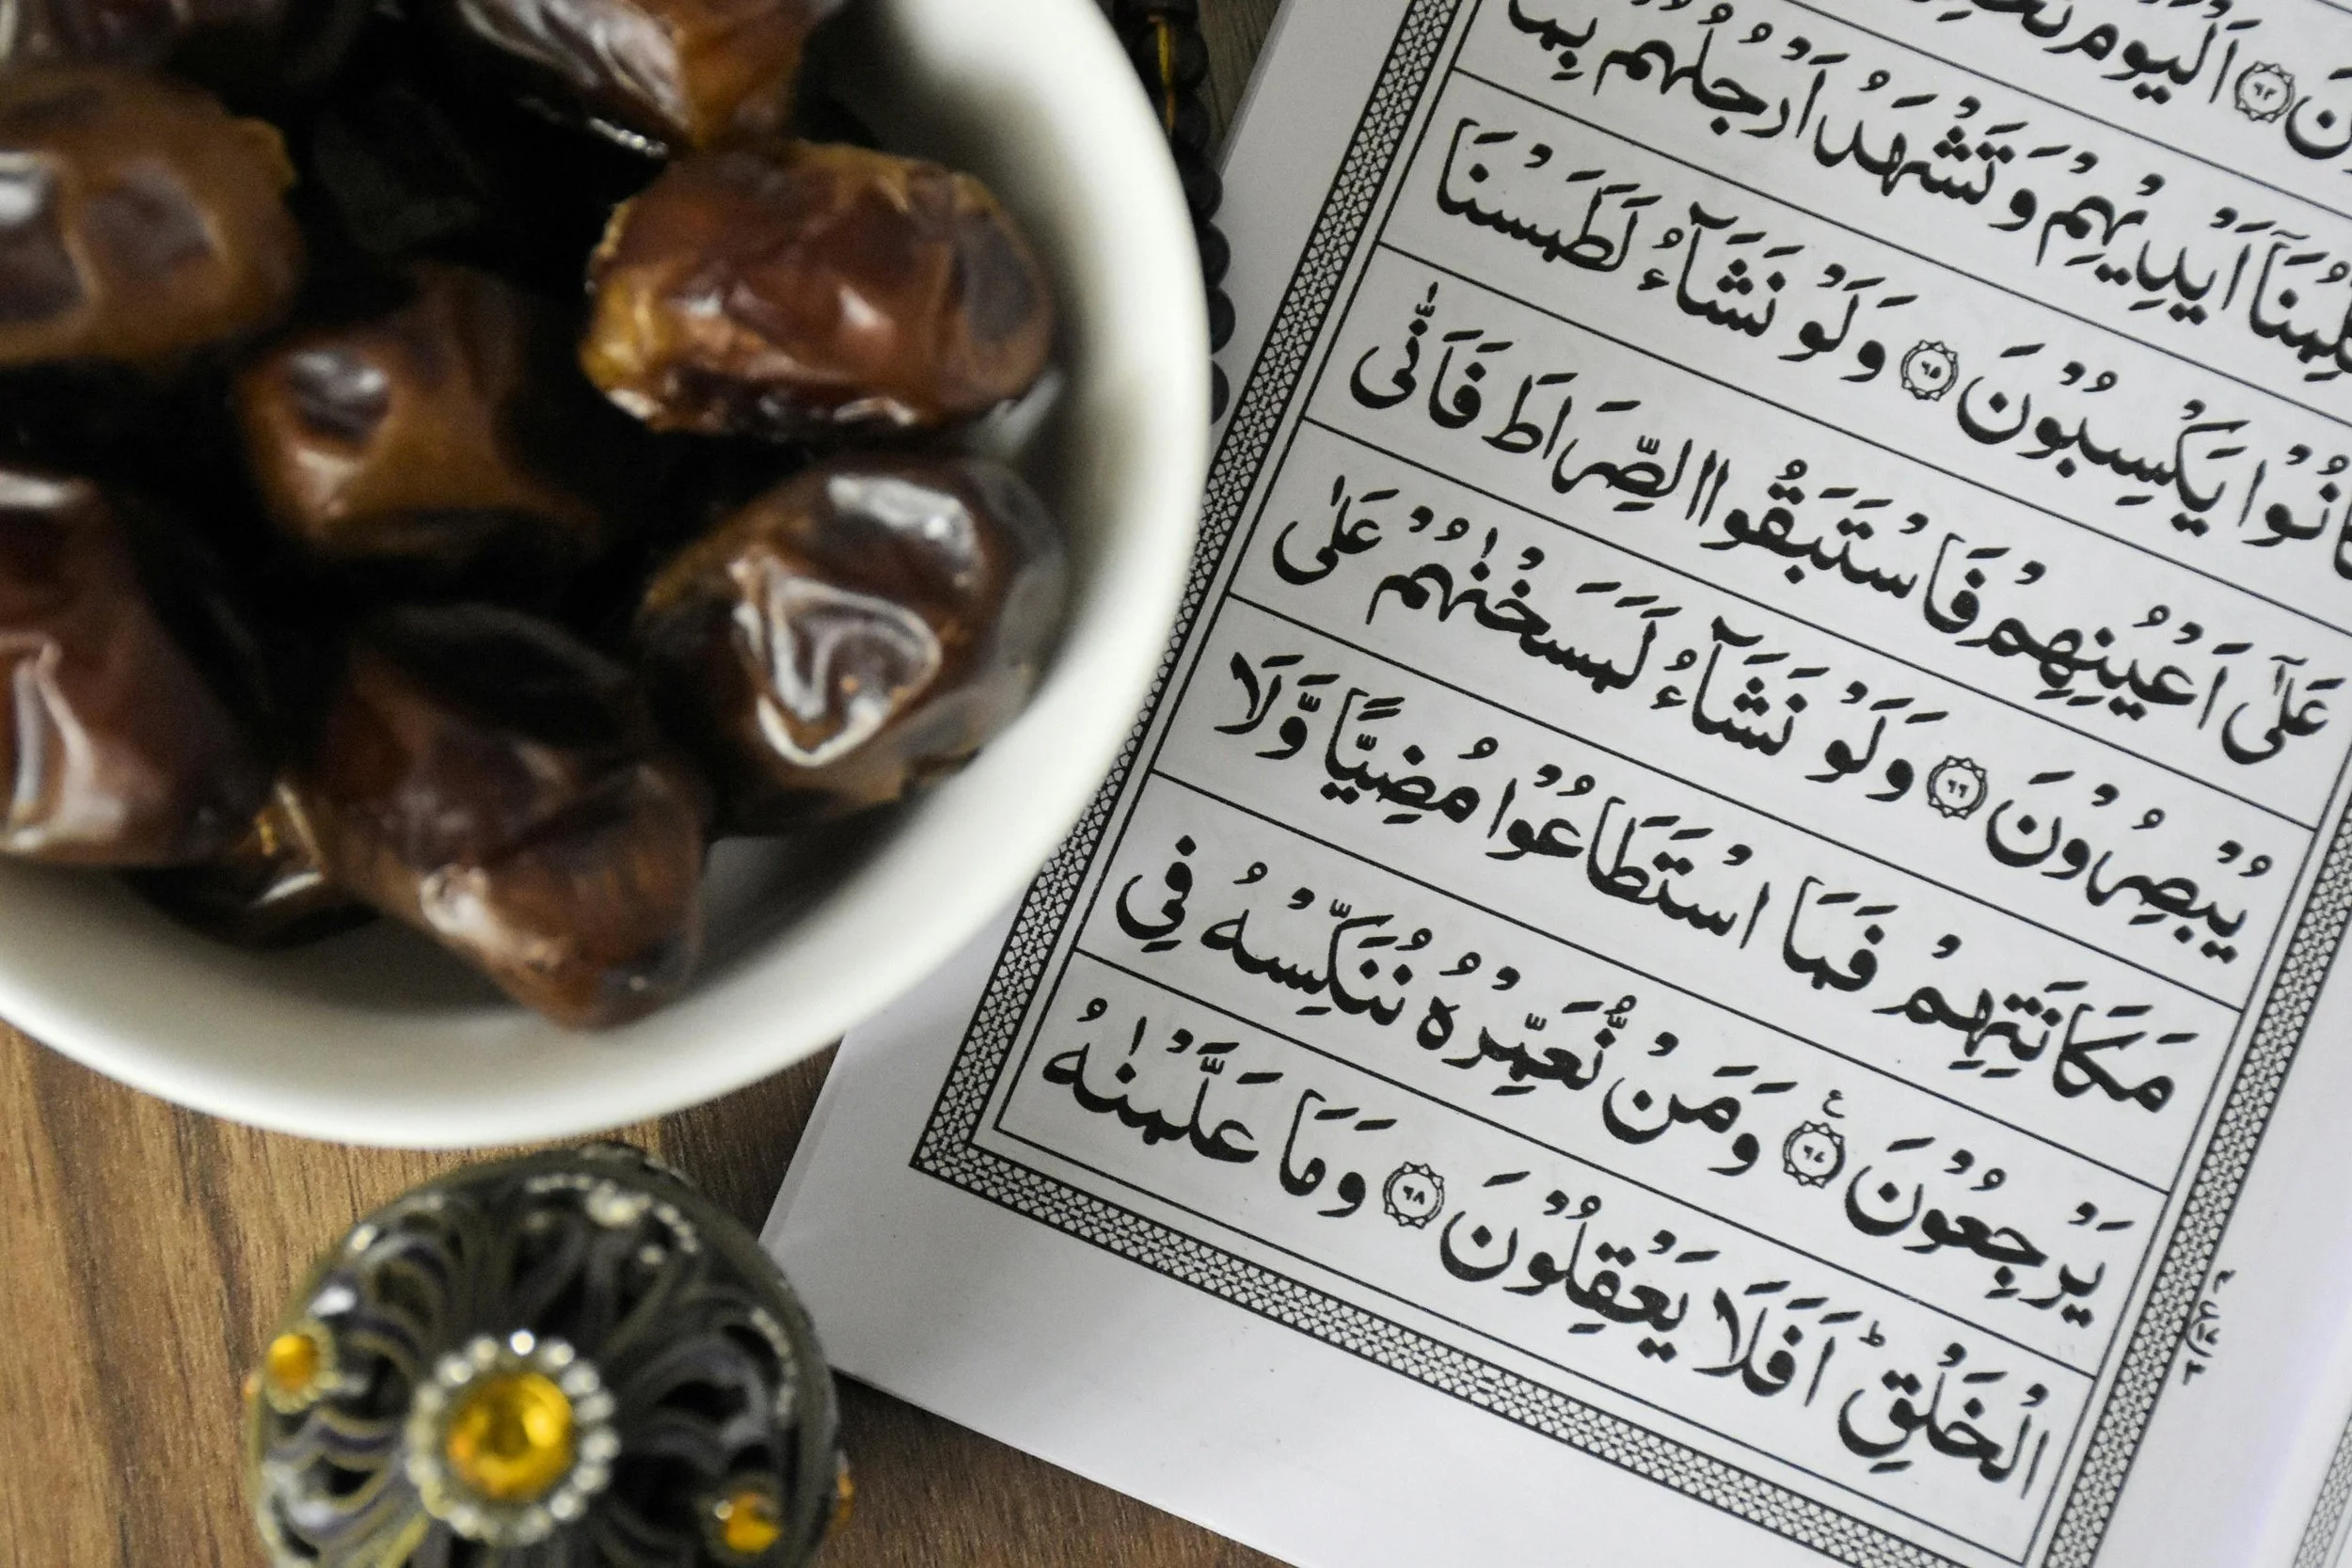 اَلْيَوْمَ
اَيْدِيْهِمْ وَتَشْهَدُ اَرْجُلُهُمْ بِمَا
كَانُوْا يَكْسِبُوْنَ ۝٦٥ وَلَوْ نَشَآءُ لَطَمَسْنَا
عَلٰٓى اَعْيُنِهِمْ فَاسْتَبَقُوا الصِّرَاطَ فَاَنّٰى
يُبْصِرُوْنَ ۝٦٦ وَلَوْ نَشَآءُ لَمَسَخْنٰهُمْ عَلٰى
مَكَانَتِهِمْ فَمَا اسْتَطَاعُوْا مُضِيًّا وَّلَا
يَرْجِعُوْنَ ۝٦٧ۧ وَمَنْ نُّعَمِّرْهُ نُنَكِّسْهُ فِى
الْخَلْقِؕ اَفَلَا يَعْقِلُوْنَ ۝٦٨ وَمَا عَلَّمْنٰهُ